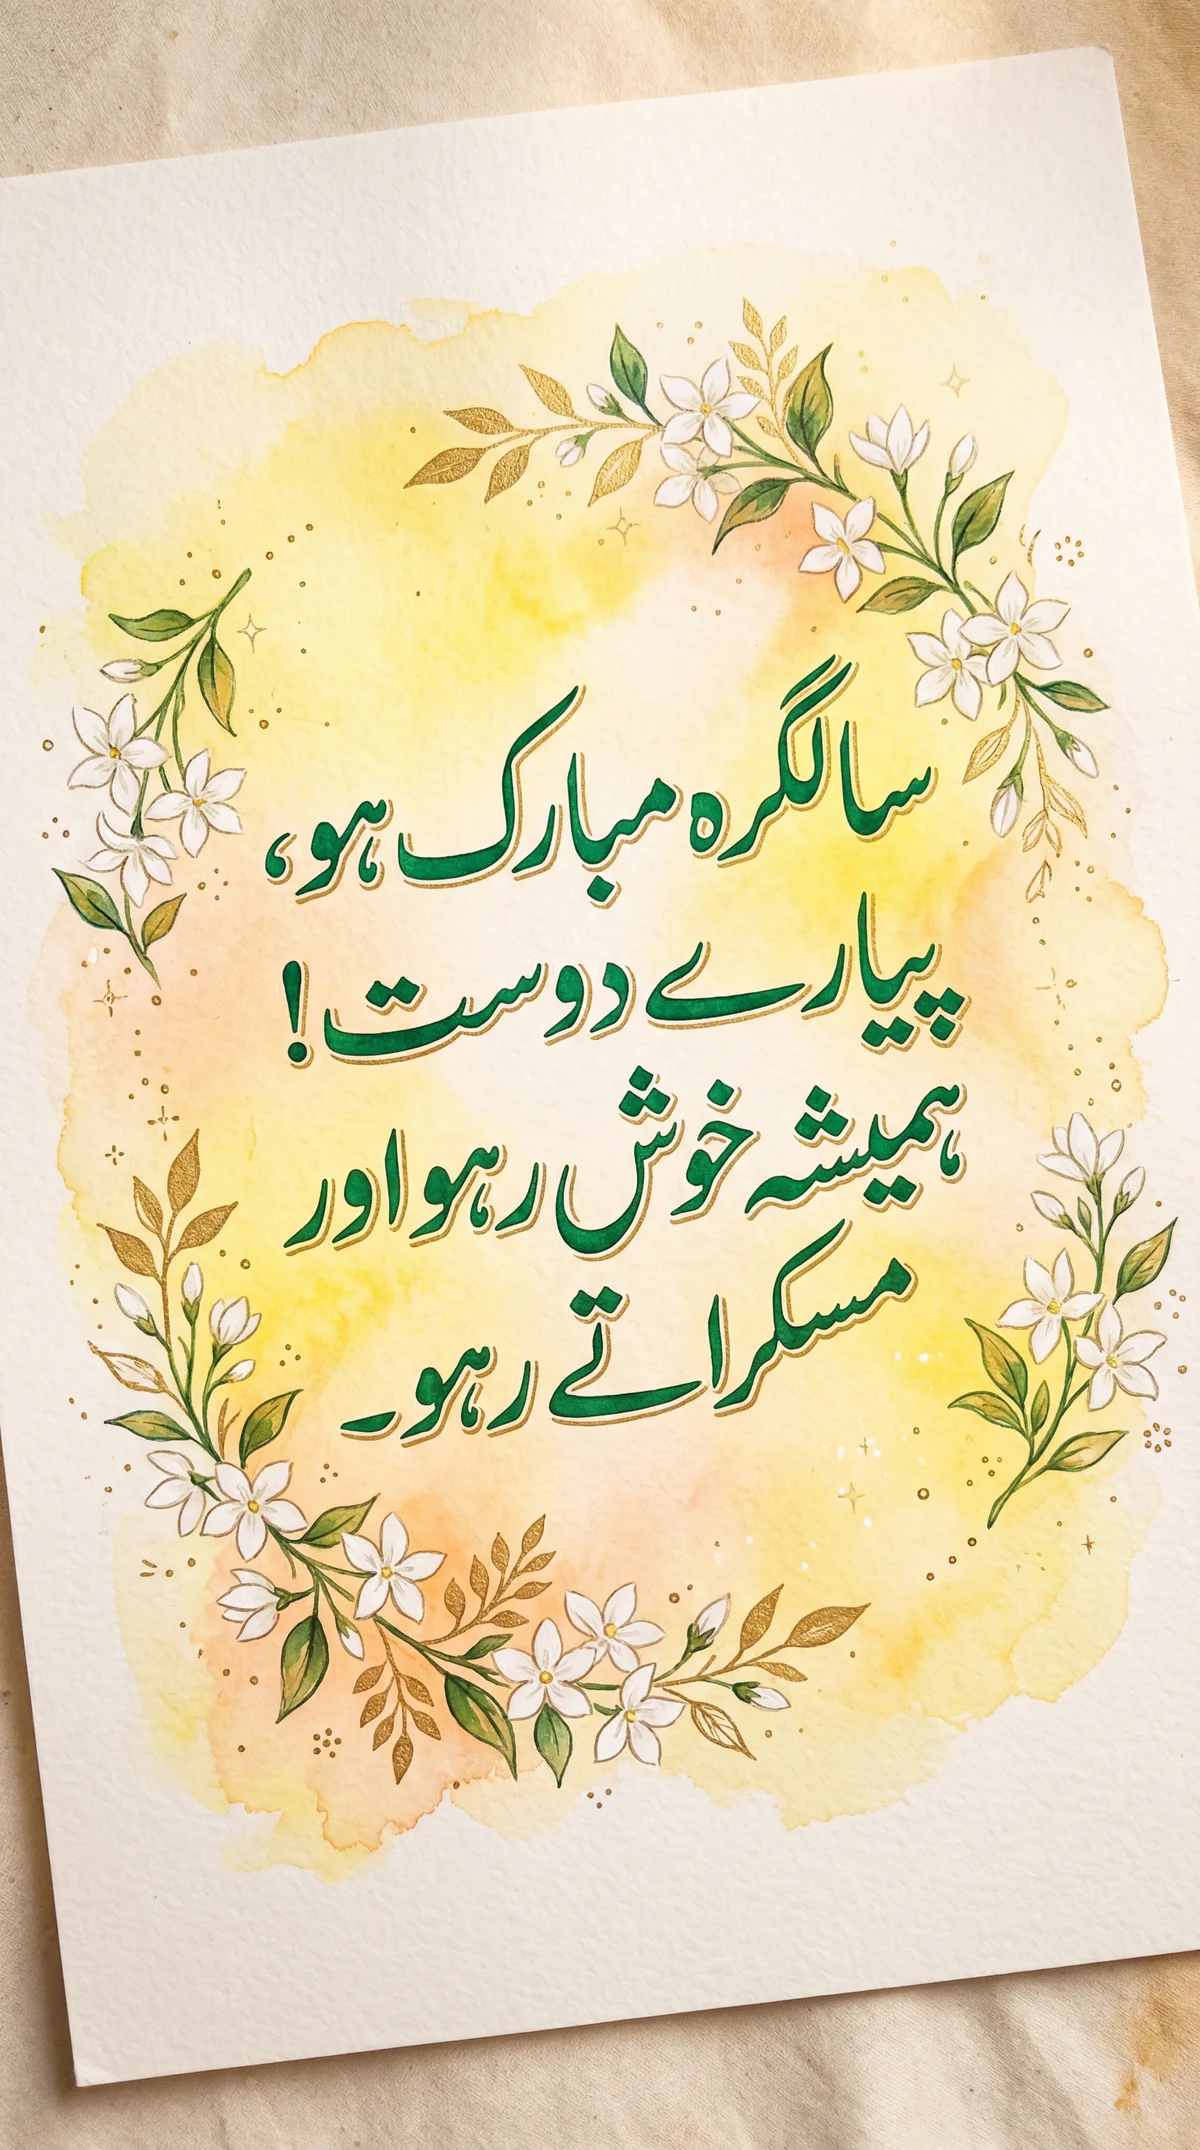 سالگرہ مبارک ہو،
پیارے دوست!
ہمیشہ خوش رہو اور
مسکراتے رہو۔